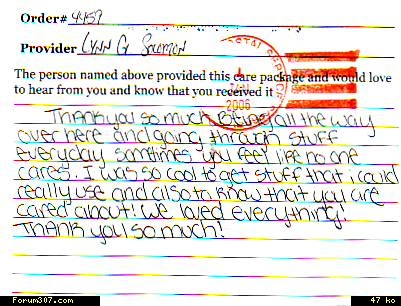 Order# 4459
Provider Lynn G Solomon
The person named above provided this care package and would love
to hear from you and know that you received it
2006
Thank you so much! Being all the way
over here and going through stuff
everyday sometimes you feel like no one
cares. I was so cool to get stuff that i could
really use and also to know that you are
cared about! We loved everything!
Thank you so much!
Forum307.com
47 ko